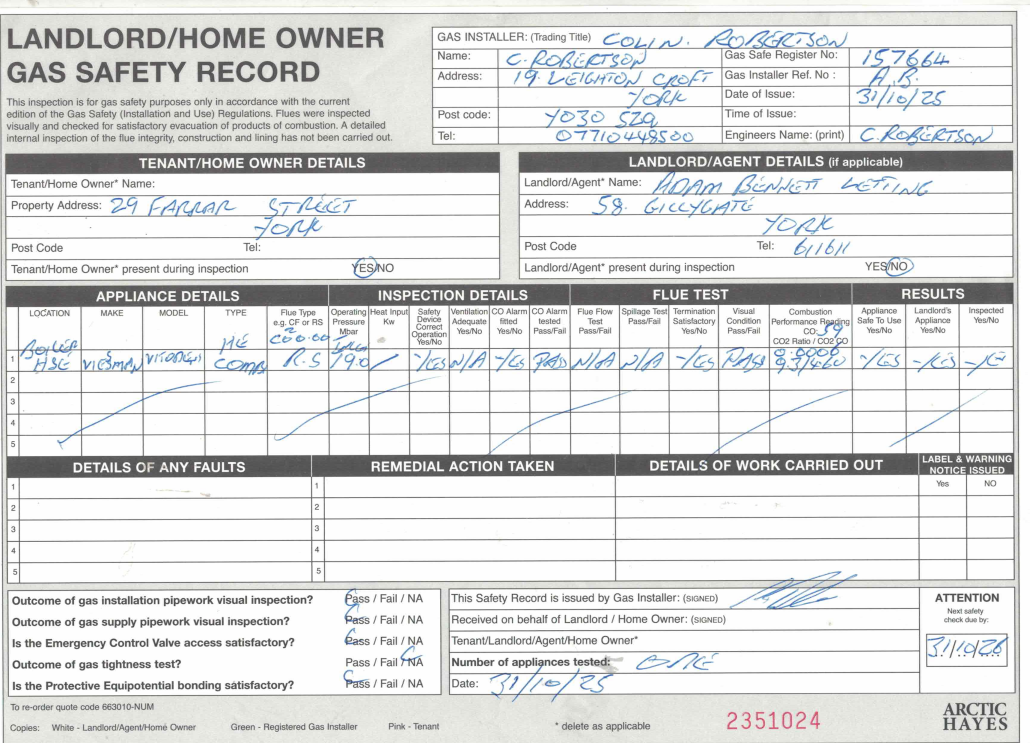 LANDLORD/HOME OWNER
GAS SAFETY RECORD
This inspection is for gas safety purposes only in accordance with the current
edition of the Gas Safety (Installation and Use) Regulations. Flues were inspected
visually and checked for satisfactory evacuation of products of combustion. A detailed
internal inspection of the flue integrity, construction and lining has not been carried out.
GAS INSTALLER: (Trading Title) COLIN. ROBERTSON
Name: C. ROBERTSON Gas Safe Register No: 157664
Address: 19. LEIGHTON CROFT Gas Installer Ref. No : A.B.
YORK Date of Issue: 31/10/25
Post code: YO30 5ZQ Time of Issue:
Tel: 07710448500 Engineers Name: (print) C. ROBERTSON
TENANT/HOME OWNER DETAILS
Tenant/Home Owner* Name:
Property Address: 29 FARRAR STREET
YORK
Post Code Tel:
Tenant/Home Owner* present during inspection YES/NO
LANDLORD/AGENT DETAILS (if applicable)
Landlord/Agent* Name: ADAM BENNETT LETTING
Address: 58. GILLYGATE
YORK
Post Code Tel: 611611
Landlord/Agent* present during inspection YES/NO
APPLIANCE DETAILS INSPECTION DETAILS FLUE TEST RESULTS
LOCATION MAKE MODEL TYPE Flue Type e.g. CF or RS Operating Pressure Mbar Heat Input Kw Safety Device Correct Operation Yes/No Ventilation Adequate Yes/No CO Alarm fitted Yes/No CO Alarm tested Pass/Fail Flue Flow Test Pass/Fail Spillage Test Pass/Fail Termination Satisfactory Yes/No Visual Condition Pass/Fail Combustion Performance Reading CO: 59 CO2 Ratio / CO2 CO Appliance Safe To Use Yes/No Landlord's Appliance Yes/No Inspected Yes/No
1 BOILER HSE VIESMAN HE COMB R.S 19.0 YES N/A YES PASS N/A N/A YES PASS 9.3/460 YES YES YE
2
3
4
5
DETAILS OF ANY FAULTS REMEDIAL ACTION TAKEN DETAILS OF WORK CARRIED OUT LABEL & WARNING NOTICE ISSUED
Yes NO
1 1
2 2
3 3
4 4
5 5
Outcome of gas installation pipework visual inspection? Pass / Fail / NA
Outcome of gas supply pipework visual inspection? Pass / Fail / NA
Is the Emergency Control Valve access satisfactory? Pass / Fail / NA
Outcome of gas tightness test? Pass / Fail / NA
Is the Protective Equipotential bonding satisfactory? Pass / Fail / NA
This Safety Record is issued by Gas Installer: (SIGNED)
Received on behalf of Landlord / Home Owner: (SIGNED)
Tenant/Landlord/Agent/Home Owner*
Number of appliances tested: ONE
Date: 31/10/25
ATTENTION
Next safety
check due by:
31/10/26
To re-order quote code 663010-NUM
Copies: White - Landlord/Agent/Home Owner Green - Registered Gas Installer Pink - Tenant * delete as applicable
2351024
ARCTIC
HAYES